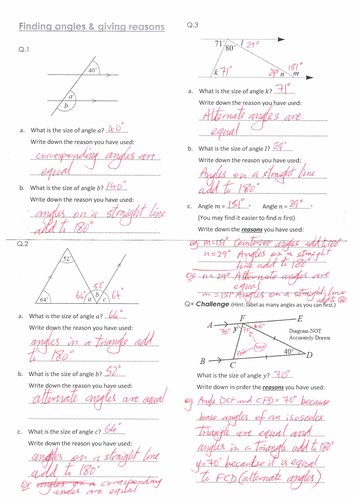 Finding angles & giving reasons
Q.1
40°
a
b
a. What is the size of angle a? 40°
Write down the reason you have used:
corresponding angles are
equal
b. What is the size of angle b? 140°
Write down the reason you have used:
angles on a straight line
add to 180°
Q.2
52°
52°
64°
64°
a b c
64°
a. What is the size of angle a? 64°
Write down the reason you have used:
angles in a triangle add
to 180°
b. What is the size of angle b? 52°
Write down the reason you have used:
alternate angles are equal
c. What is the size of angle c? 64°
Write down the reason you have used:
angles on a straight line
add to 180°
or angles on a corresponding
angles are equal
Q.3
71°
80°
l 29°
k 71°
29° n
151°
m
a. What is the size of angle k? 71°
Write down the reason you have used:
Alternate angles are
equal
b. What is the size of angle l? 29°
Write down the reason you have used:
Angles on a straight line
add to 180°
c. Angle m = 151° Angle n = 29°
(You may find it easier to find n first)
Write down the reasons you have used:
eg m=151° Cointerior angles add to 180°
n=29° Angles on a straight
line add to 180°
or n=29° Alternate angles are
equal
m=151° Angles on a straight line
add to 180°
Q+ Challenge (Hint: label as many angles as you can first.)
A
F
E
70°
y
Diagram NOT
Accurately Drawn
40°
B
C
D
What is the size of angle y? 70°
Write down in order the reasons you have used:
eg Angle DCF and CFD = 70° because
base angles of an isosceles
Triangle are equal and
angles in a triangle add to 180°
y=70° because it is equal
to FCD (alternate angles)